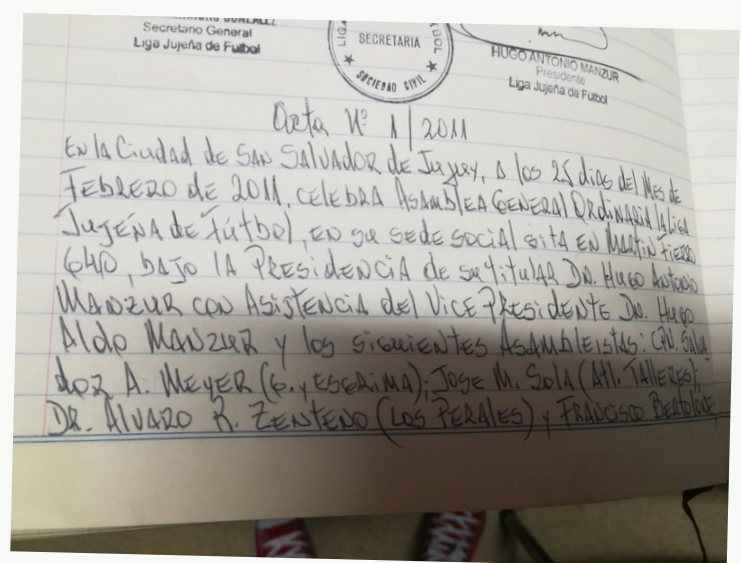 Secretario General
Liga Jujeña de Futbol
SECRETARIA
SOCIEDAD CIVIL
HUGO ANTONIO MANZUR
Presidente
Liga Jujeña de Futbol
Acta Nº 1/2011
En la Ciudad de San Salvador de Jujuy, a los 25 dias del Mes de
Febrero de 2011, celebra Asamblea General Ordinaria la Liga
Jujeña de Fútbol, en su sede social sita en Martin Fierro
640, bajo la Presidencia de su titular Dn. Hugo Antonio
Manzur con Asistencia del Vice Presidente Dn. Hugo
Aldo Manzur y los siguientes Asambleistas: CPN. Salva
dor A. Meyer (G. y Esgrima); Jose M. Sola (Atl. Talleres);
Dr. Alvaro R. Zenteno (Los Perales) y Francisco